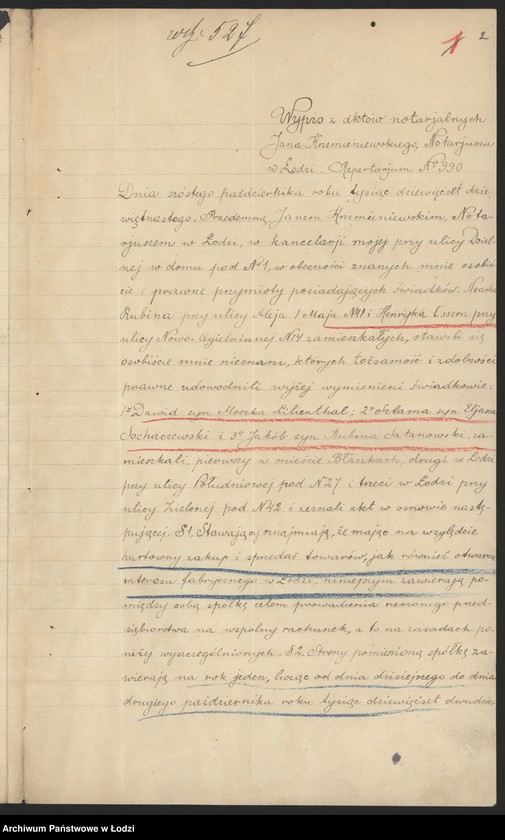 2
Wypis z aktów notarjalnych
Jana Kremieniewskiego, Notarjusza
w Łodzi. Repertorjum № 990.
Dnia szóstego października roku tysiąc dziewięćset dzie-
więtnastego. Przedemną Janem Kremieniewskim, Nota-
rjuszem w Łodzi, w kancelarji mojej przy ulicy Dziel-
nej w domu pod №1, w obecności znanych mnie osobiś-
cie i prawne przymioty posiadających świadków.
Rubina przy ulicy Aleja 1 Maja №41 i Henryka Ossera przy
ulicy Nowo-Cegielnianej №14 zamieszkałych, stawili się
osobiście mnie nieznani, których tożsamość i zdolności
prawne udowodnili wyżej wymienieni świadkowie:
1º Dawid syn Moszka Lilienthal; 2º Szlama syn Eljasza
Sochaczewski i 3º Jakób syn Rubina Satanowski, za-
mieszkali, pierwszy w mieście Błaszkach, drugi w Łodzi
przy ulicy Południowej pod №27 i trzeci w Łodzi przy
ulicy Zielonej pod №42 i zeznali akt w osnowie nastę-
pującej. § 1. Stawający oznajmiają, że mając na względzie
hurtowny zakup i sprzedaż towarów, jak również otwarcie
interesu fabrycznego w Łodzi, niniejszym zawierają po-
między sobą spółkę celem prowadzenia rzeczonego przed-
siębiorstwa na wspólny rachunek, a to na zasadach po-
niżej wyszczególnionych. § 2. Strony pomienioną spółkę za-
wierają na rok jeden, licząc od dnia dzisiejszego do dnia
drugiego października roku tysiąc dziewięćset dwudzies-
Archiwum Państwowe w Łodzi